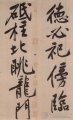 德必祀傍臨
砥柱北眺龍門